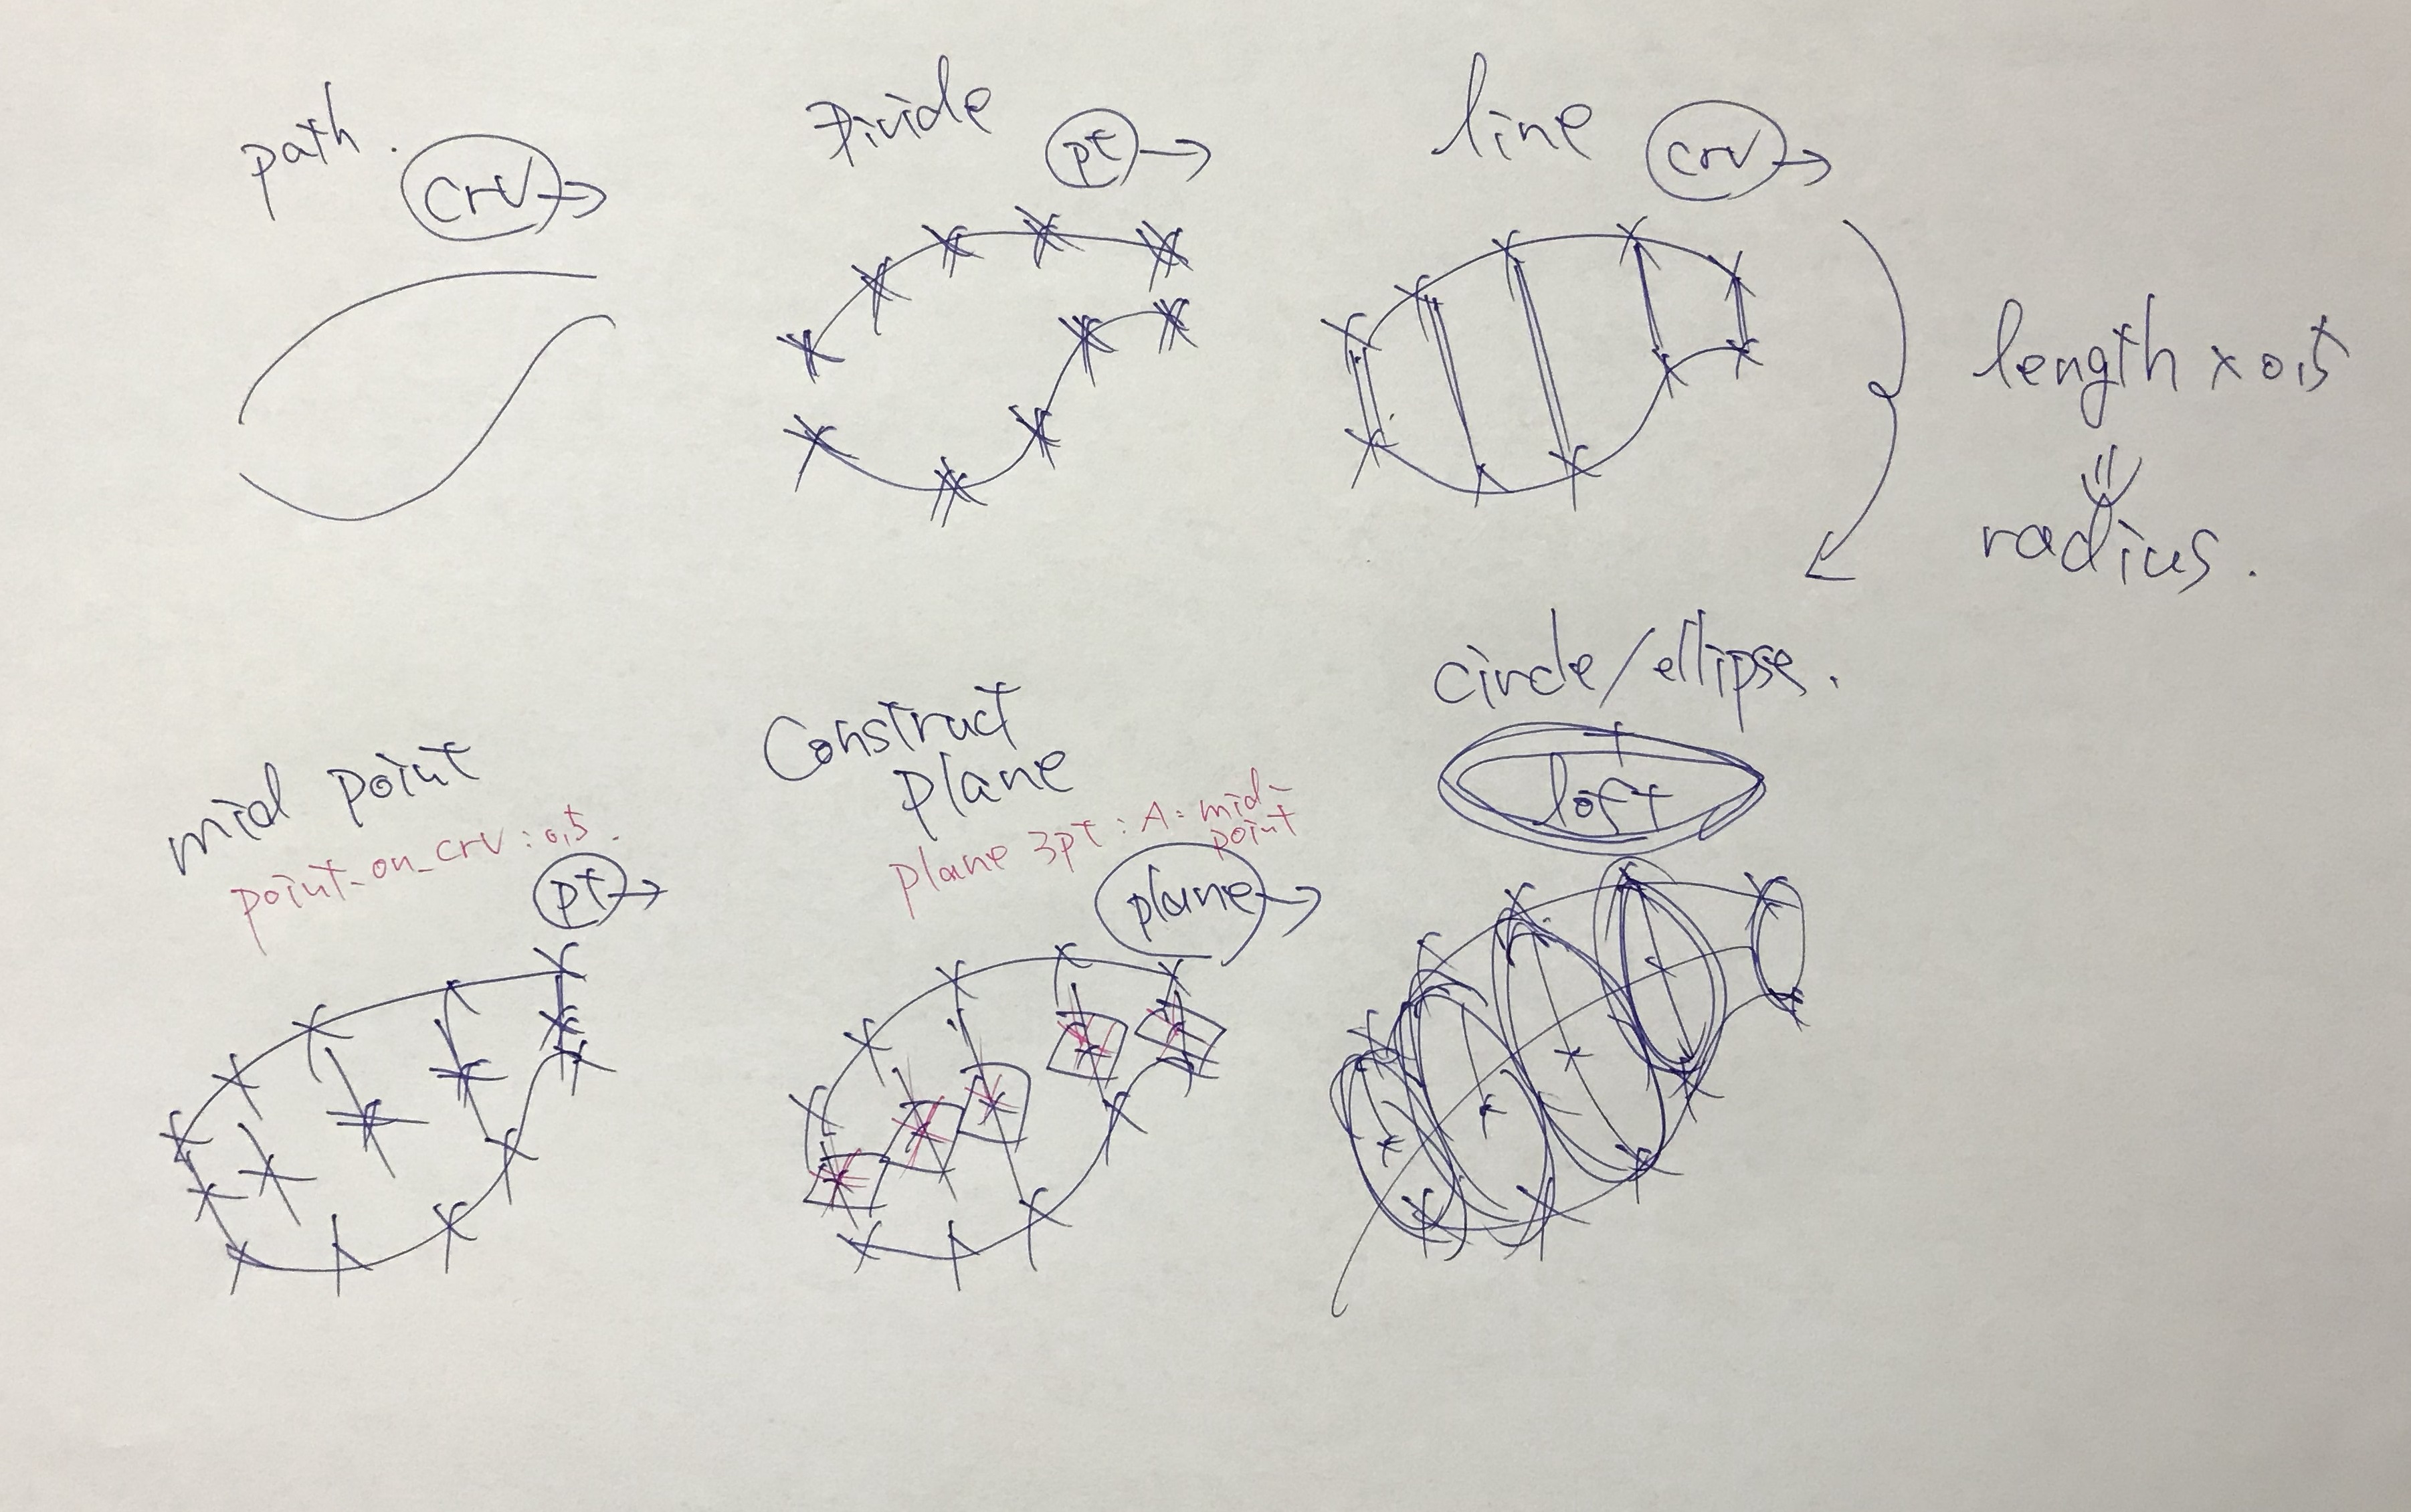 path.
crv
Divide
pt
line
crv
length x 0.5
radius.
mid point
point_on_crv : 0.5.
pt
Construct
plane
plane 3pt : A = mid-
point
plane
circle/ellipse.
loft